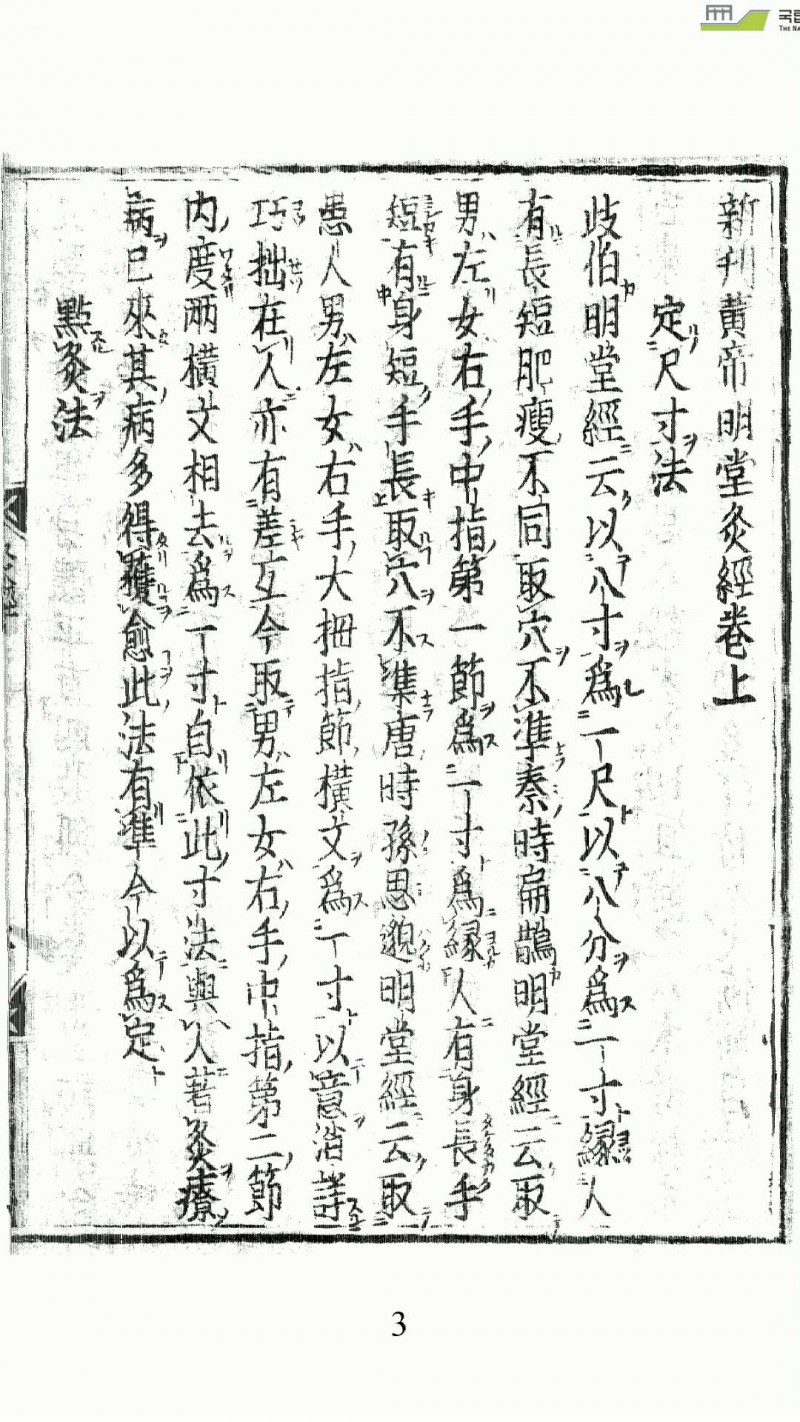 新刊黄帝明堂灸經卷上
定尺寸法
歧伯明堂經云以八寸爲一尺以八分爲一寸縁人
有長短肥瘦不同取穴不準秦時扁鵲明堂經云取
男左女右手中指第一節爲一寸爲縁人有身長手
短有身短手長取穴不準唐時孫思邈明堂經云取
患人男左女右手大拇指節橫文爲一寸以意消詳
巧拙在人亦有差互今取男左女右手中指第二節
内度兩橫文相去爲一寸自依此寸法與人著灸療
病已來其病多得獲愈此法有準今以爲定
點灸法
3